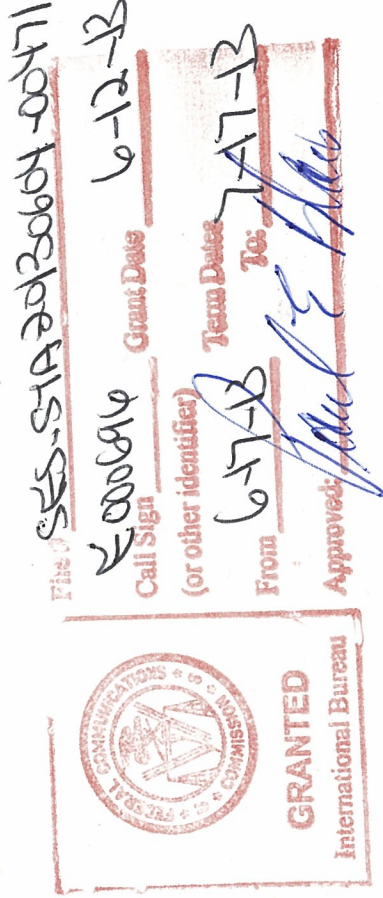 File # SES-STA-20130604-00471
E000696 6-12-13
Call Sign Grant Date
(or other identifier)
Term Dates
From 6-17-13 To: 7-17-13
Approved:
FEDERAL COMMUNICATIONS COMMISSION
GRANTED
International Bureau